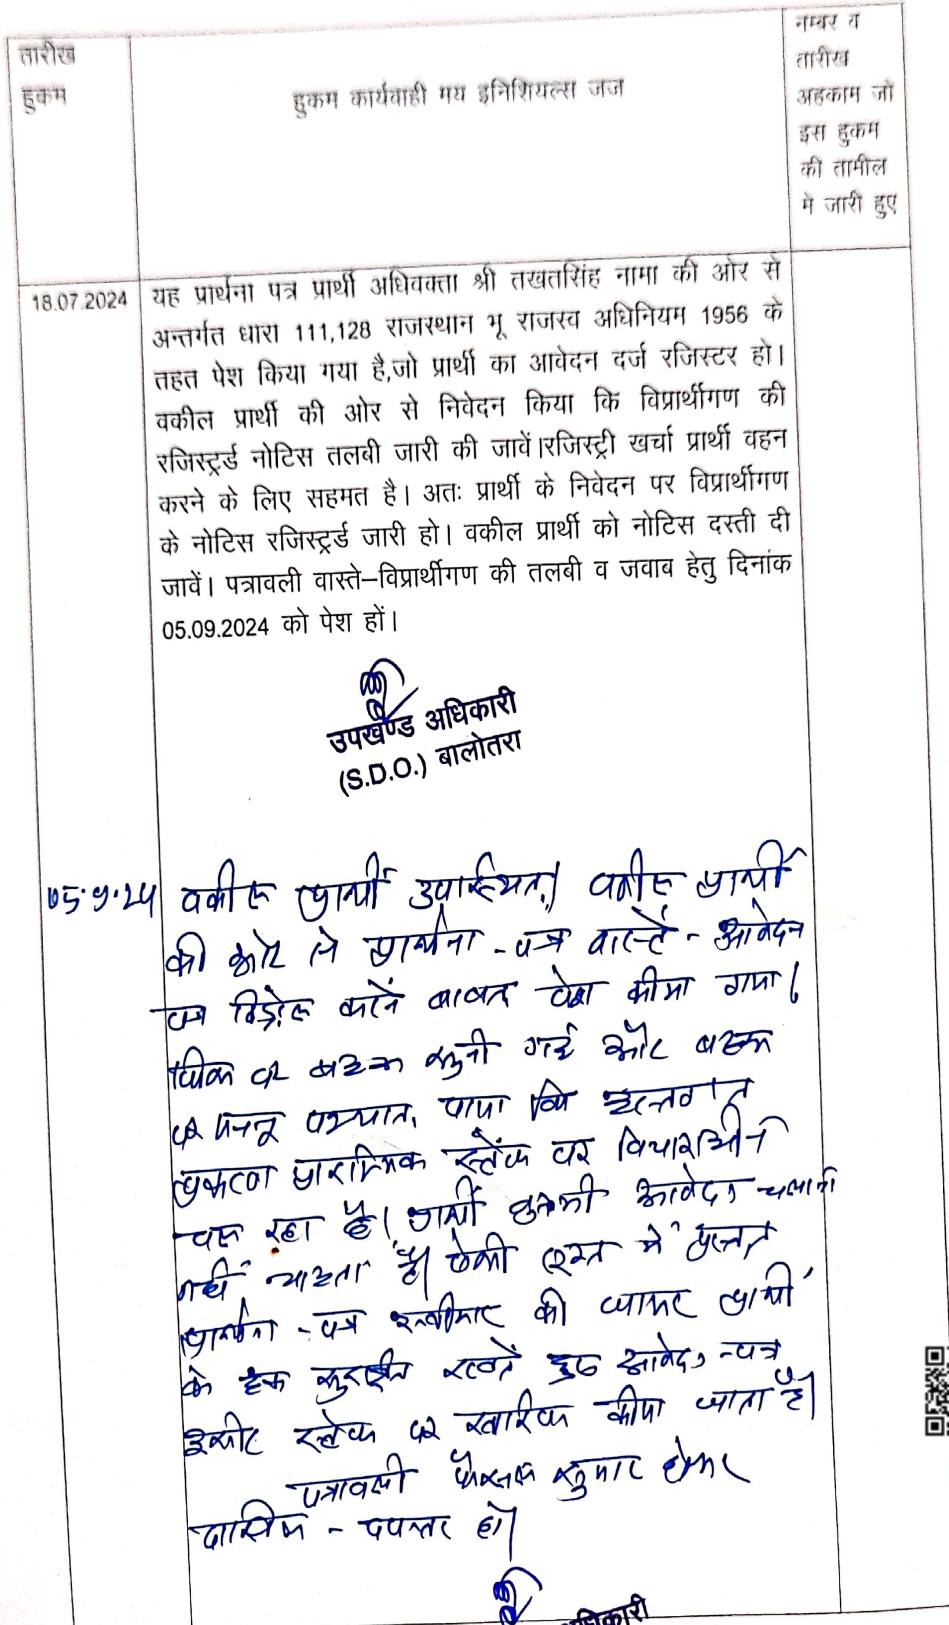 तारीख
हुकम
हुकम कार्यवाही मय इनिशियल्स जज
नम्बर व
तारीख
अहकाम जो
इस हुकम
की तामील
मे जारी हुए
18.07.2024
यह प्रार्थना पत्र प्रार्थी अधिवक्ता श्री तखतसिंह नामा की ओर से
अन्तर्गत धारा 111,128 राजस्थान भू राजस्व अधिनियम 1956 के
तहत पेश किया गया है,जो प्रार्थी का आवेदन दर्ज रजिस्टर हो।
वकील प्रार्थी की ओर से निवेदन किया कि विप्रार्थीगण की
रजिस्ट्रर्ड नोटिस तलबी जारी की जावें।रजिस्ट्री खर्चा प्रार्थी वहन
करने के लिए सहमत है। अतः प्रार्थी के निवेदन पर विप्रार्थीगण
के नोटिस रजिस्ट्रर्ड जारी हो। वकील प्रार्थी को नोटिस दस्ती दी
जावें। पत्रावली वास्ते–विप्रार्थीगण की तलबी व जवाब हेतु दिनांक
05.09.2024 को पेश हों।
उपखण्ड अधिकारी
(S.D.O.) बालोतरा
05.9.24
वकील प्रार्थी उपस्थित। वकील प्रार्थी
की ओर से प्रार्थना - पत्र वास्ते - आवेदन
पत्र विड्रोल करने बाबत पेश कीया गया।
पर बहस सुनी गई और बहस
पर मनन पश्चात, पाया कि हस्तगत
प्रकरण प्रारम्भिक स्टेज पर विचाराधीन
चल रहा है। प्रार्थी आवेदन चलाना
नहीं चाहता है। ऐसी सूरत में प्रस्तुत
प्रार्थना - पत्र स्वीकार की जाकर प्रार्थी
के हक सुरक्षित रखते हुए आवेदन - पत्र
इसी स्टेज पर खारिज कीया जाता है।
पत्रावली फैसल सुमार होकर
दाखिल - दफ्तर हो।
अधिकारी